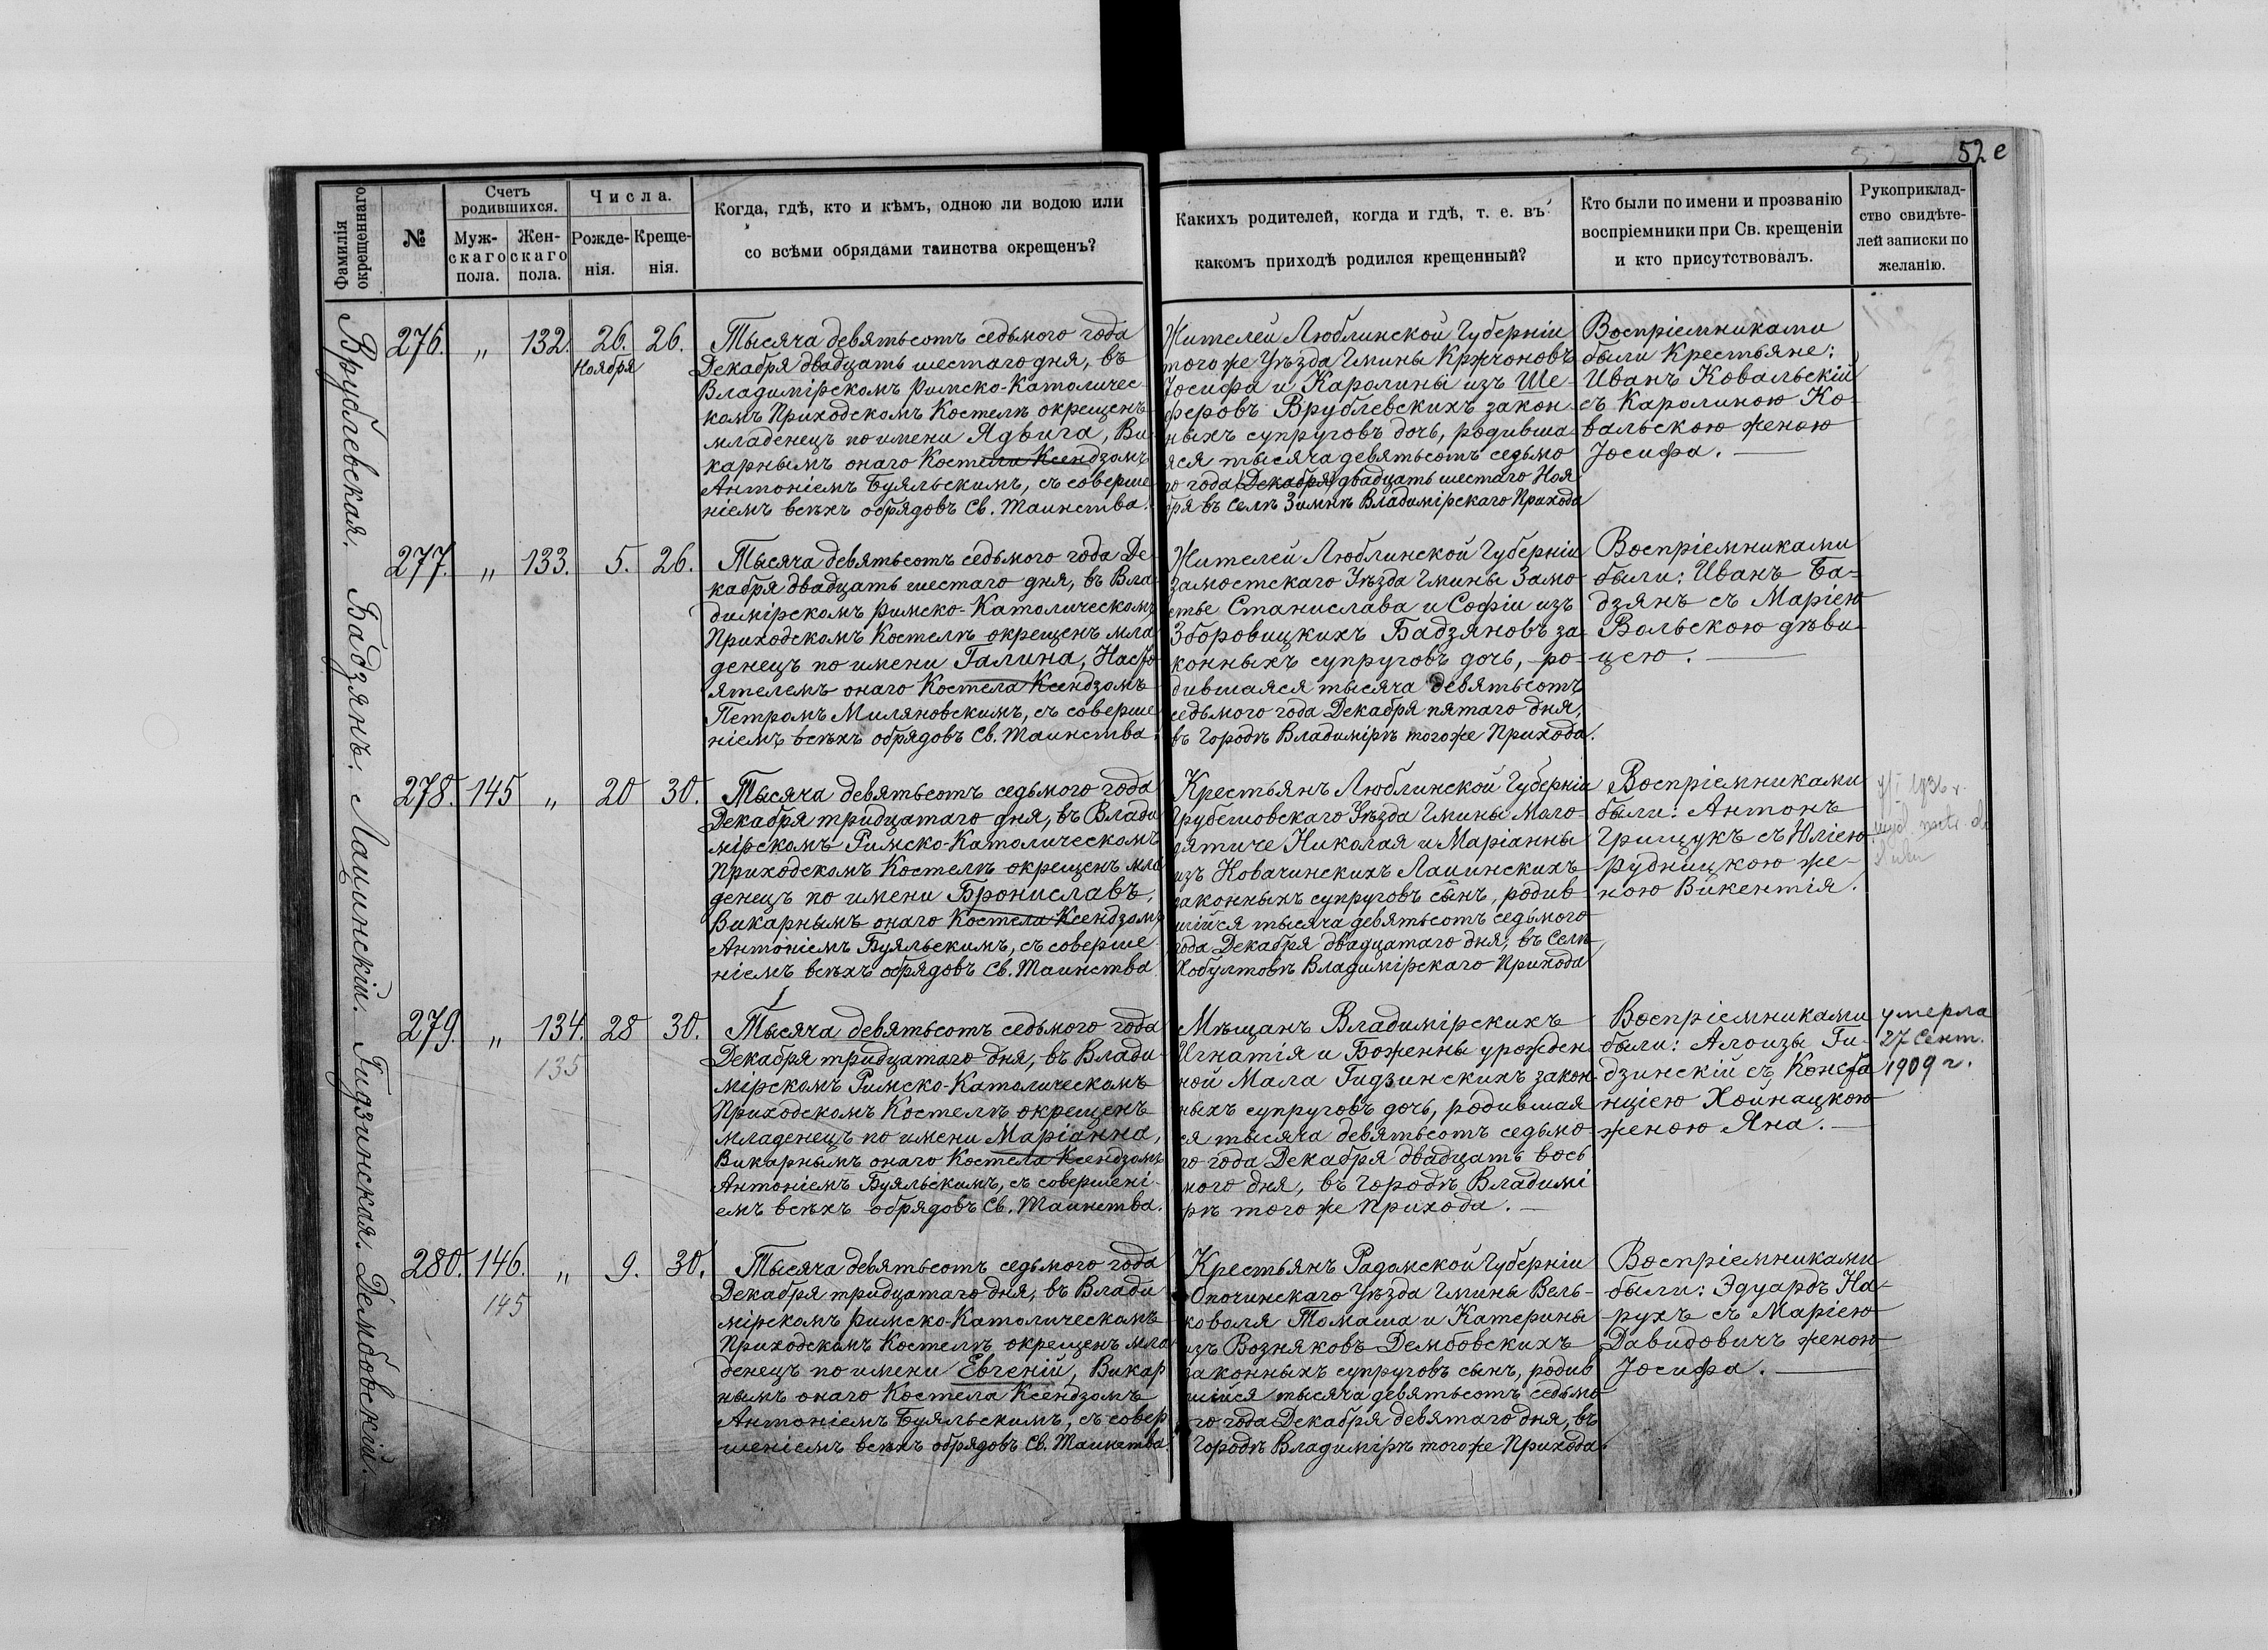 52 е
Фамилія
окрещеннаго
№
Счетъ
родившихся.
Муж-
скаго
пола.
Жен-
скаго
пола.
Числа.
Рожде-
нія.
Креще-
нія.
Когда, гдѣ, кто и кѣмъ, одною ли водою или
со всѣми обрядами таинства окрещенъ?
Какихъ родителей, когда и гдѣ, т. е. въ
какомъ приходѣ родился крещенный?
Кто были по имени и прозванію
воспріемники при Св. крещеніи
и кто присутствовалъ.
Рукоприклад-
ство свидѣте-
лей записки по
желанію.
Врублевская.
276. „ 132. 26. 26.
Ноября
Тысяча девятьсотъ седьмого года
Декабря двадцать шестаго дня, въ
Владимірскомъ Римско-Католичес-
комъ Приходскомъ Костелѣ окрещенъ
младенецъ по имени Ядвига, Ви-
карнымъ онаго Костела Ксендзомъ
Антоніемъ Буяльскимъ, съ соверше
ніемъ всѣхъ обрядовъ Св. Таинства.
Жителей Люблинской Губерніи
того же Уѣзда Гмины Кржчоновъ
Іосифа и Каролины изъ Ше-
феровъ Врублевскихъ закон-
ныхъ супруговъ дочь, родивша-
яся тысяча девятьсотъ седьмо
го года (Декабря) двадцать шестаго Ноя
бря въ селѣ Зимнѣ Владимірскаго Прихода
Воспріемниками
были Крестьяне:
Иванъ Ковальскій
съ Каролиною Ко-
вальскою женою
Іосифа.
Бадзянъ.
277. „ 133. 5. 26.
Тысяча девятьсотъ седьмого года Де-
кабря двадцать шестаго дня, въ Вла-
димірскомъ Римско-Католическомъ
Приходскомъ Костелѣ окрещенъ мла
денецъ по имени Галина, Насто
ятелемъ онаго Костела Ксендзомъ
Петромъ Миляновскимъ, съ соверше
ніемъ всѣхъ обрядовъ Св. Таинства.
Жителей Люблинской Губерніи
Замостскаго Уѣзда Гмины Замо-
стье Станислава и Софіи изъ
Зборовицкихъ Бадзяновъ за-
конныхъ супруговъ дочь, ро-
дившаяся тысяча девятьсотъ
седьмого года Декабря пятаго дня,
въ Городѣ Владимірѣ того же Прихода.
Воспріемниками
были: Иванъ Ба-
дзянъ съ Маріею
Вольскою дѣви-
цею.
Лацинскій.
278. 145 „ 20 30.
Тысяча девятьсотъ седьмого года
Декабря тридцатаго дня, въ Влади
мірскомъ Римско-Католическомъ
Приходскомъ Костелѣ окрещенъ мла
денецъ по имени Брониславъ,
Викарнымъ онаго Костела Ксендзомъ
Антоніемъ Буяльскимъ, съ соверше
ніемъ всѣхъ обрядовъ Св. Таинства
Крестьянъ Люблинской Губерніи
Грубешовскаго Уѣзда Гмины Моло-
дятиче Николая и Маріанны
изъ Ковачинскихъ Лацинскихъ
законныхъ супруговъ сынъ, родив-
шійся тысяча девятьсотъ седьмого
года Декабря двадцатаго дня, въ Селѣ
Хобултовѣ Владимірскаго Прихода
Воспріемниками
были: Антонъ
Грищукъ съ Юліею
Рудницкою же-
ною Викентія.
1936 r.
Гидзинская.
279. „ 134. 28 30.
135
Тысяча девятьсотъ седьмого года
Декабря тридцатаго дня, въ Влади-
мірскомъ Римско-Католическомъ
Приходскомъ Костелѣ окрещенъ
младенецъ по имени Маріанна,
Викарнымъ онаго Костела Ксендзомъ
Антоніемъ Буяльскимъ, съ совершені-
емъ всѣхъ обрядовъ Св. Таинства.
Мѣщанъ Владимірскихъ
Игнатія и Боженны урожден
ной Мала Гидзинскихъ закон-
ныхъ супруговъ дочь, родившая
ся тысяча девятьсотъ седьмо-
го года Декабря двадцать вось
мого дня, въ Городѣ Владимі
рѣ того же Прихода.
Воспріемниками
были: Алоизы Ги-
дзинскій съ Конста
нціею Хойнацкою
женою Яна.
умерла
27 Сент.
1909 г.
Дембовскій.
280. 146. „ 9. 30.
145
Тысяча девятьсотъ седьмого года
Декабря тридцатаго дня, въ Влади
мірскомъ Римско-Католическомъ
Приходскомъ Костелѣ окрещенъ мла
денецъ по имени Евгеній, Викар
нымъ онаго Костела Ксендзомъ
Антоніемъ Буяльскимъ, съ совер
шеніемъ всѣхъ обрядовъ Св. Таинства.
Крестьянъ Радомской Губерніи
Опочинскаго Уѣзда Гмины Вель-
коволя Томаша и Катерины
изъ Возняковъ Дембовскихъ
законныхъ супруговъ сынъ, родив
шійся тысяча девятьсотъ седьмо
го года Декабря девятаго дня, въ
Городѣ Владимірѣ того же Прихода.
Воспріемниками
были: Эдуардъ На-
рухъ съ Маріею
Давидовичъ женою
Іосифа.